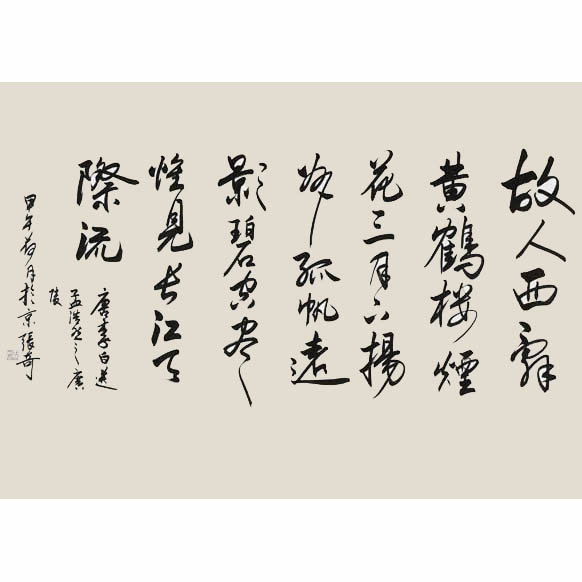 故人西辭
黄鶴楼煙
花三月下揚
州孤帆遠
影碧空尽
惟見長江天
際流
唐李白送
孟浩然之廣
陵
甲午月於京張奇